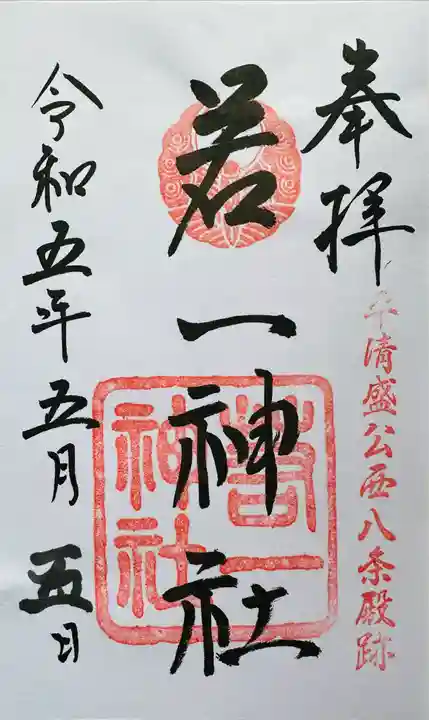 奉拝
平清盛公西八条殿跡
若一神社
若一神社
令和五年五月五日